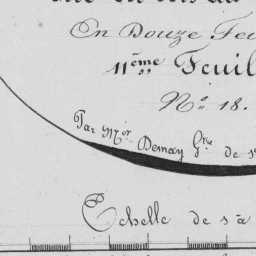 En Douze Feu
11ème Feuil
No 18.
Par Mor Demay Gre de s
Echelle de sa